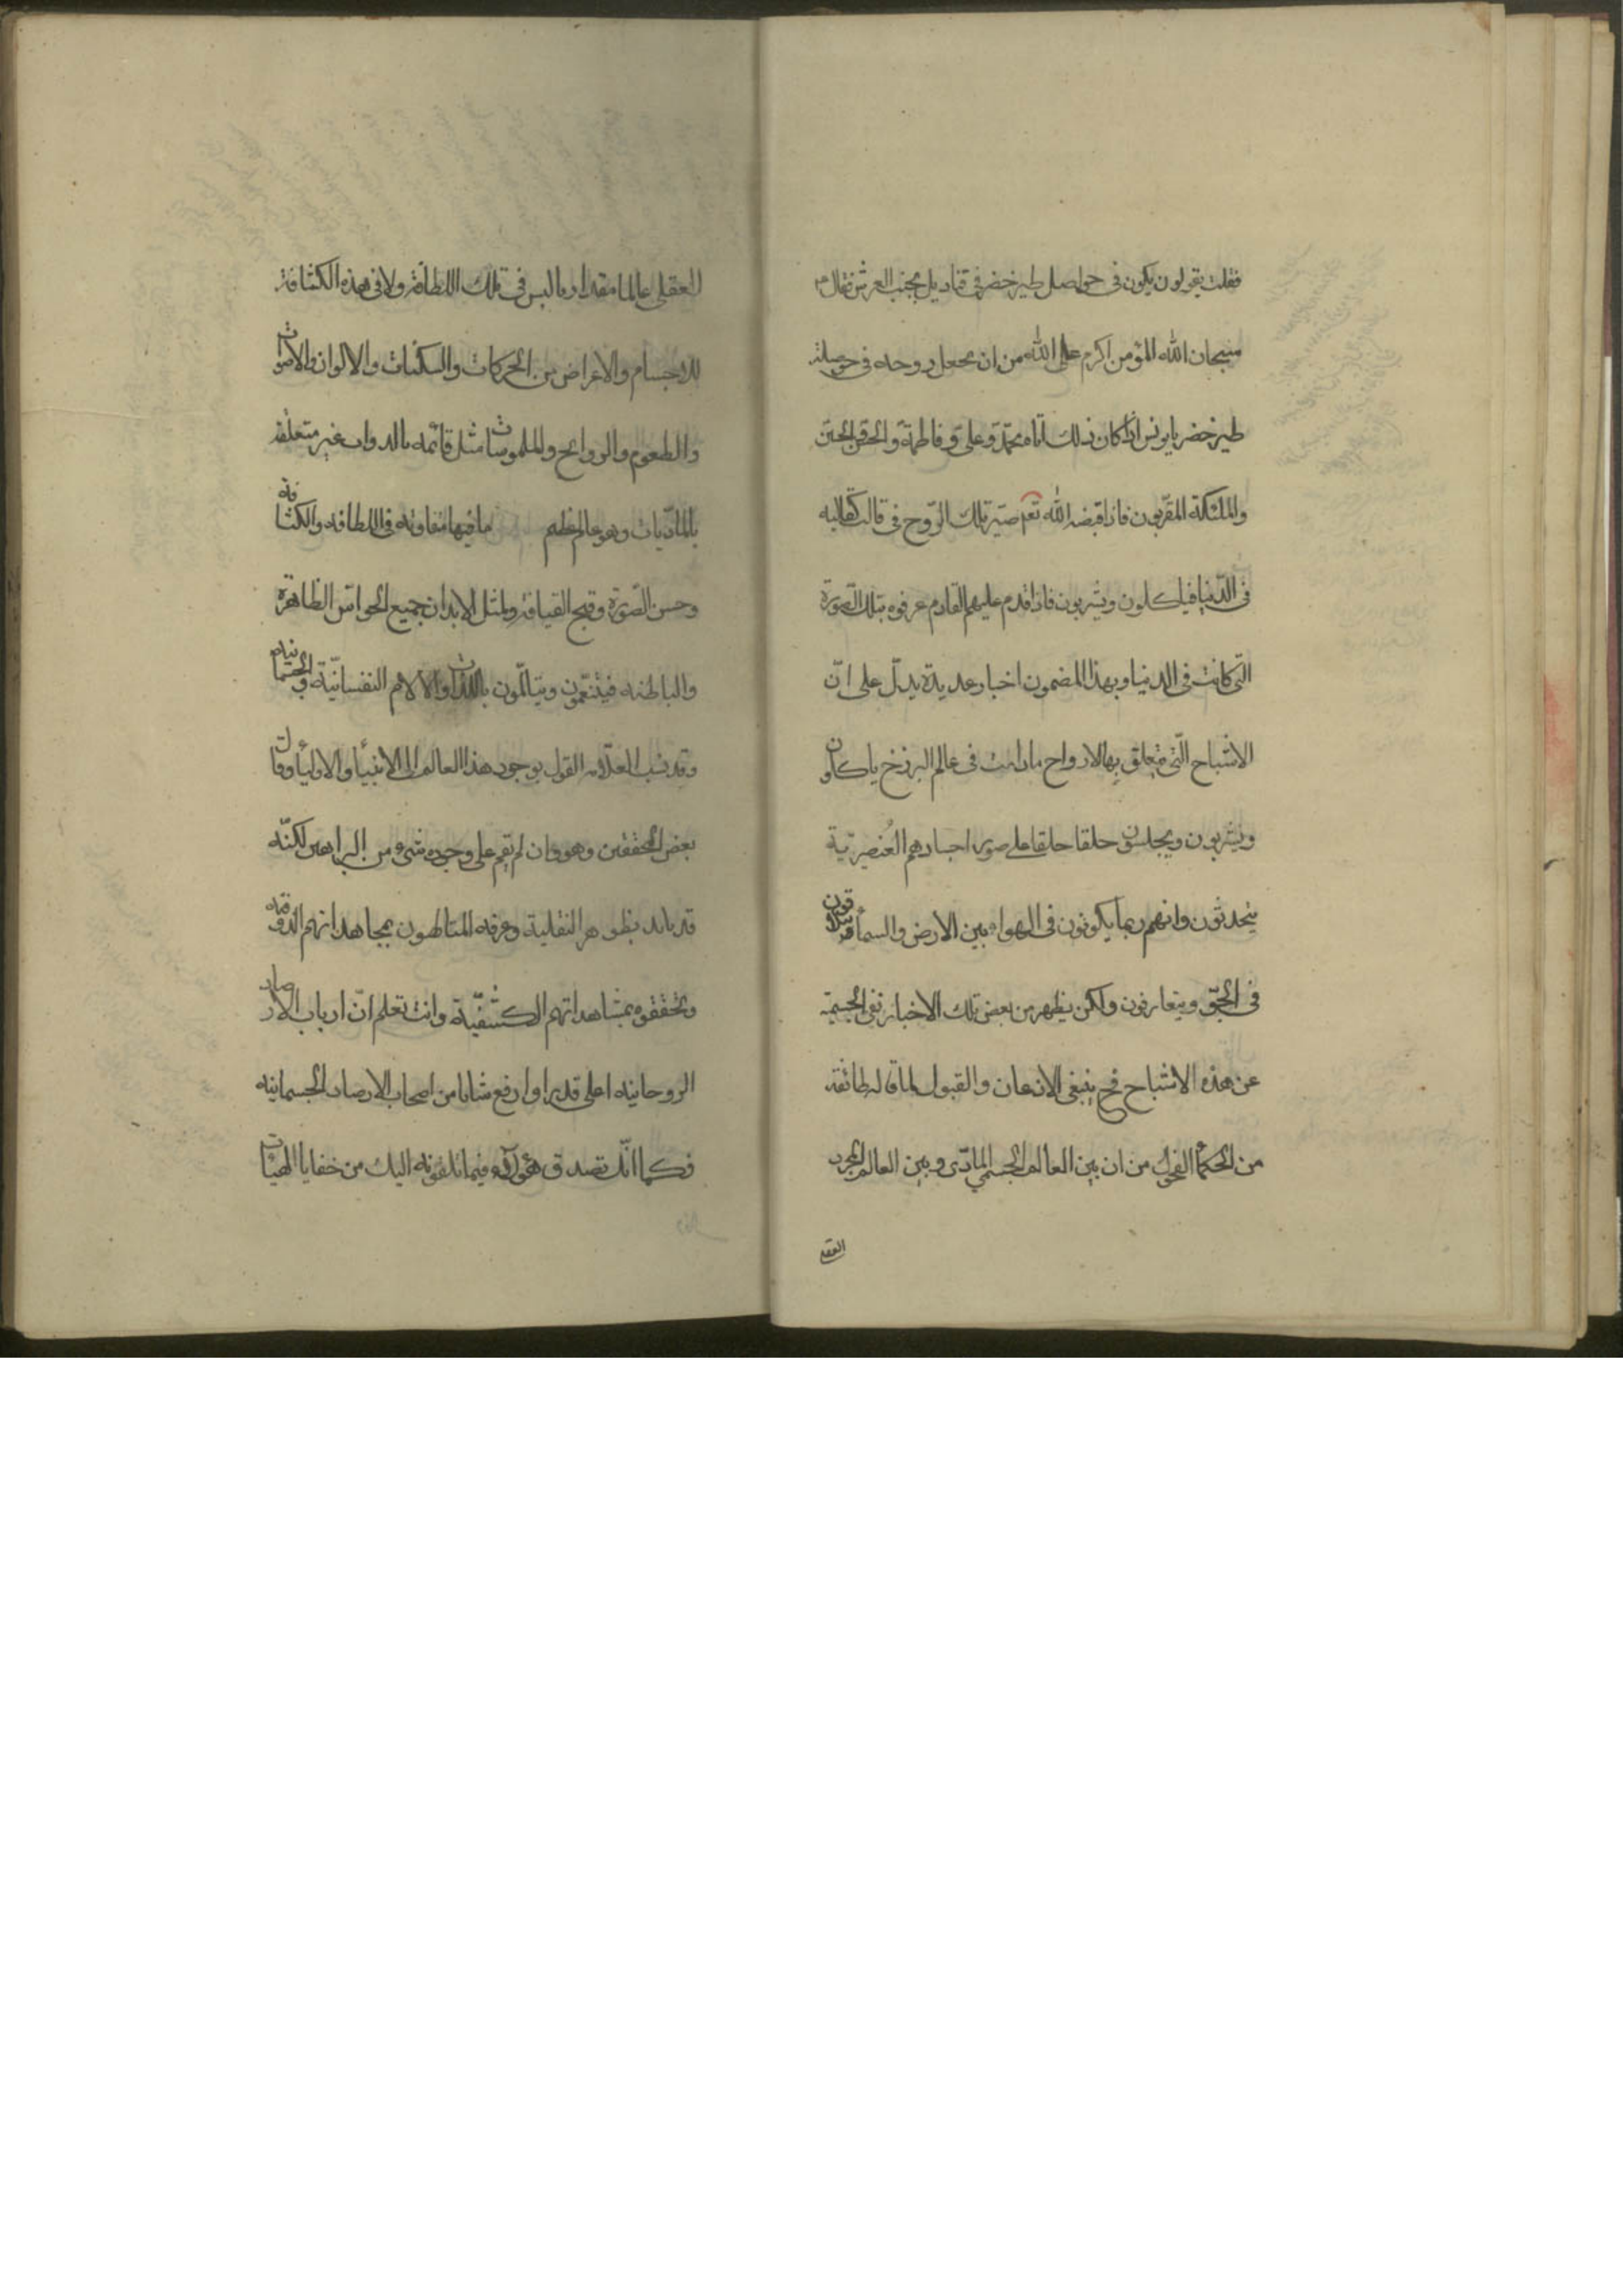 فقلت يقولون يكون فى حواصل طير خضر فى قناديل تحت العرش فقال ع
سبحان الله المؤمن اكرم على الله من ان يجعل روحه فى حوصلة
طير خضر يا يونس اذا كان ذلك اتاه محمّد و على و فاطمة و الحسن و الحسين
والملئكة المقرّبون فاذا قبضه الله تعم صيّر تلك الرّوح فى قالب كقالبه
فى الدّنيا فياكلون ويشربون فاذا قدم عليهم القادم عرفوه بتلك الصّورة
التّى كانت فى الدنيا وبهذا المضمون اخبار عديدة يدلّ على انّ
الاشباح الّتى يتعلق بها الارواح مادامت فى عالم البرزخ ياكلون
ويشربون ويجلسون حلقا حلقا على صور اجسادهم العُنصريّة
يتحدثون وانهم ربما يكونون فى الهواء بين الارض والسمأ
فى الجّو ويتعارفون ولكن يظهر من بعض تلك الاخبار نفى الجسمية
عن هذه الاشباح فح ينبغى الاذعان والقبول لما قاله طائفة
من الحكمأ الفحول من ان بين العالم الجسمي المادّى و بين العالم المجرد
العقـ
العقلى عالما مقداريا ليس فى تلك اللطافة ولا فى هذه الكثافة
للاجسام والاعراض من الحركات والسكنات والالوان والاصوات
والطعوم والروايح والملموسات مثل قائمه بالدوات غير متعلقة
بالمادّيات وهو عالم عظيم ما فيها متفاوته فى اللطافه والكثافة
وحسن الصّورة وقبح القيافة ولمثل الابدان جميع الحواسّ الظاهرة
والباطنه فيتنعّمون ويتالّمون باللذات والالام النفسانيّة والجسمانيه
وقد نسب العلّامه القول بوجود هذا العالم الى الانبيأ والاوليأ وقال
بعض المحققين وهو وان لم يقم على وجوده شىء من البراهين لكنّه
قد تايد بظواهر النقلية وعرفه المتالهون بمجاهداتهم الذوقيه
وتحققوه بمشاهداتهم الكشفيّة وانت تعلم انّ ارباب الارصاد
الروحانيه اعلى قدرا وارفع شانا من اصحاب الارصاد الجسمانيه
فكما انّك تصدق هؤلاء فيما يلقونه اليك من خفايا الهيئات